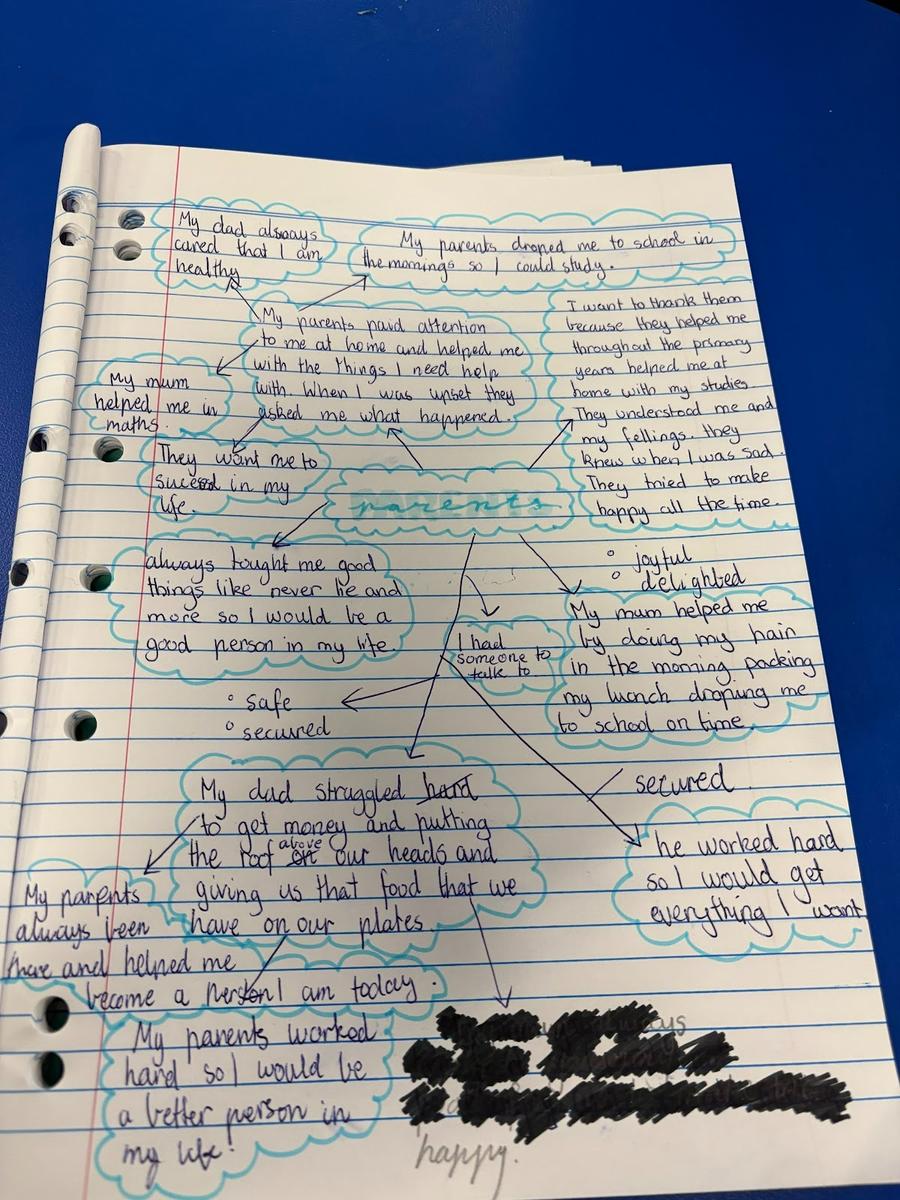 My dad always
cared that I am
healthy
My parents droped me to school in
the mornings so I could study.
My parents paid attention
to me at home and helped me
with the things I need help
with. When I was upset they
asked me what happened.
I want to thank them
because they helped me
throughout the primary
years helped me at
home with my studies
They understood me and
my fellings. they
knew when I was sad.
They tried to make
happy all the time.
My mum
helped me in
maths.
They want me to
in my
life.
parents
always tought me good
things like never lie and
more so I would be a
good person in my life.
° joyful
° delighted
I had
someone to
talk to
My mum helped me
by doing my hair
in the morning packing
my lunch droping me
to school on time.
° safe
° secured
My dad struggled hard
to get money and putting
the roof above our heads and
giving us that food that we
have on our plates.
secured
he worked hard
so I would get
everything I want
My parents
always been
there and helped me
become a person I am today.
My parents worked
hard so I would be
a better person in
my life!
happy.